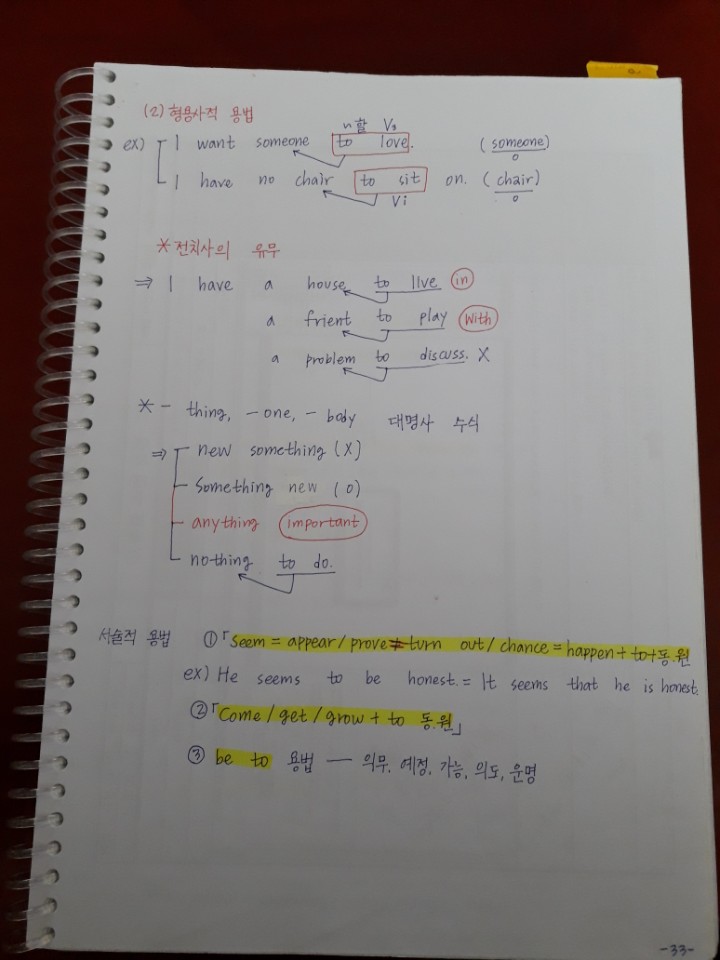 (2) 형용사적 용법
~할 V₃
ex) I want someone to love. (someone)
o
I have no chair to sit on. (chair)
Vi o
* 전치사의 유무
⇒ I have a house to live in
a frient to play with
a problem to discuss. X
* - thing, - one, - body 대명사 수식
⇒ new something (X)
something new (O)
anything important
nothing to do.
서술적 용법 ①「seem = appear / prove = turn out / chance = happen + to + 동.원
ex) He seems to be honest. = It seems that he is honest.
②「Come / get / grow + to 동.원」
③ be to 용법 — 의무, 예정, 가능, 의도, 운명
-33-